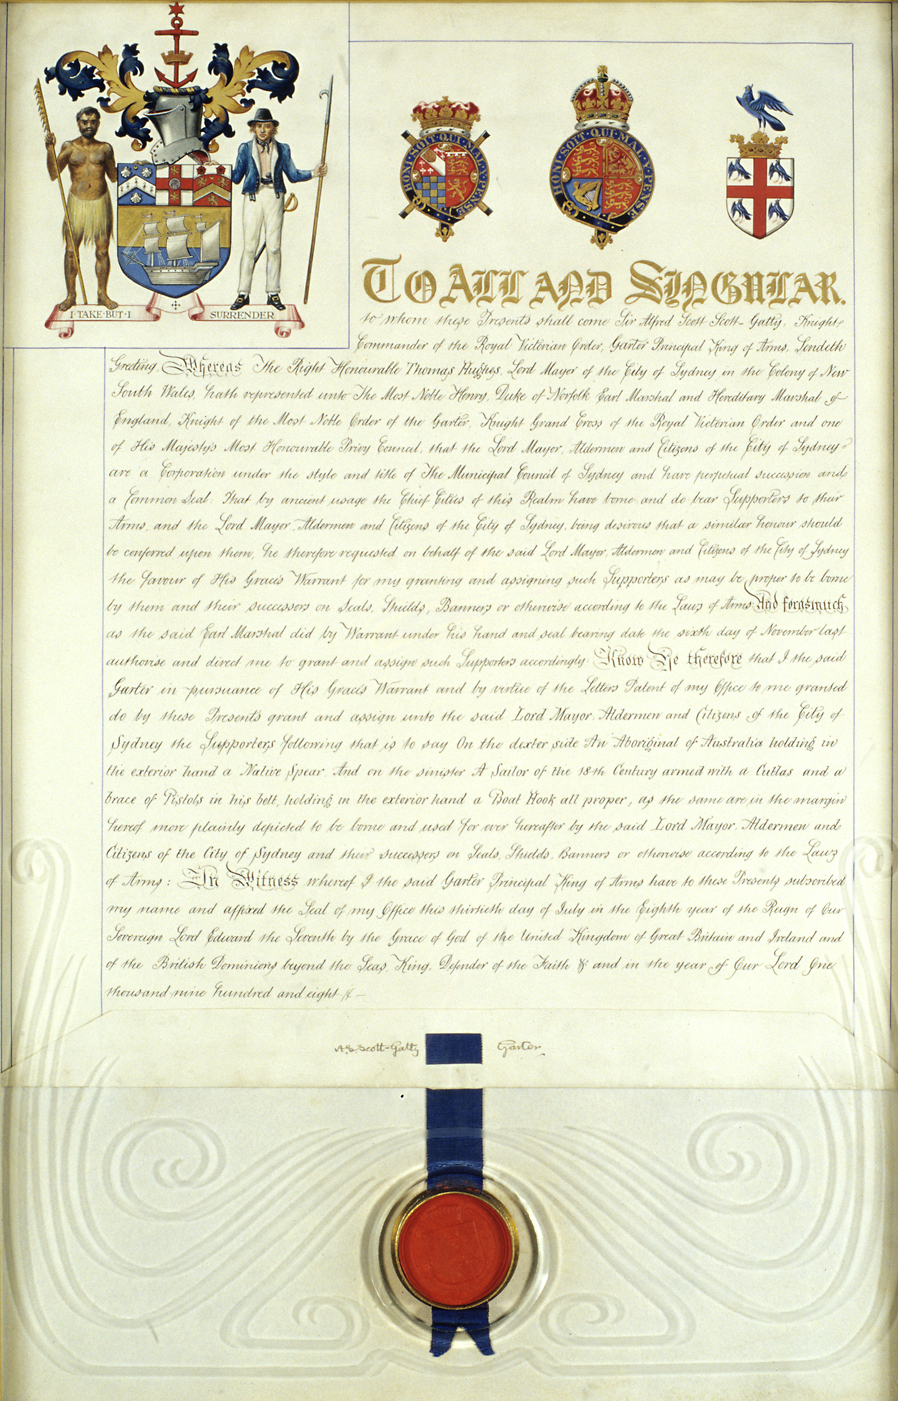 I TAKE·BUT·I SURRENDER
HONI·SOIT·QUI·MAL·Y·PENSE
HONI·SOIT·QUI·MAL·Y·PENSE
To All and Singular
to whom these Presents shall come Sir Alfred Scott Scott-Gatty, Knight
Commander of the Royal Victorian Order, Garter Principal King of Arms, Sendeth
Greeting, Whereas The Right Honourable Thomas Hughes, Lord Mayor of the City of Sydney in the Colony of New
South Wales, hath represented unto The Most Noble Henry, Duke of Norfolk Earl Marshal and Hereditary Marshal of
England, Knight of the Most Noble Order of the Garter, Knight Grand Cross of the Royal Victorian Order and one
of His Majesty's Most Honourable Privy Council, that the Lord Mayor, Aldermen and Citizens of the City of Sydney
are a Corporation under the style and title of The Municipal Council of Sydney and have perpetual succession and
a Common Seal. That by ancient usage the Chief Cities of this Realm have borne and do bear Supporters to their
Arms, and the Lord Mayor, Aldermen and Citizens of the City of Sydney, being desirous that a similar honour should
be conferred upon them, he therefore requested on behalf of the said Lord Mayor, Aldermen and Citizens of the City of Sydney
the favour of His Grace's Warrant for my granting and assigning such Supporters as may be proper to be borne
by them and their successors on Seals, Shields, Banners or otherwise according to the Laws of Arms And forasmuch
as the said Earl Marshal did by Warrant under his hand and seal bearing date the sixth day of November last
authorise and direct me to grant and assign such Supporters accordingly Know Ye therefore that I the said
Garter in pursuance of His Grace's Warrant and by virtue of the Letters Patent of my Office to me granted
do by these Presents grant and assign unto the said Lord Mayor, Aldermen and Citizens of the City of
Sydney the Supporters following that is to say On the dexter side An Aboriginal of Australia holding in
the exterior hand a Native Spear And on the sinister A Sailor of the 18th Century armed with a Cutlas and a
brace of Pistols in his belt, holding in the exterior hand a Boat Hook all proper, as the same are in the margin
hereof more plainly depicted to be borne and used for ever hereafter by the said Lord Mayor, Aldermen and
Citizens of the City of Sydney and their successors on Seals, Shields, Banners or otherwise according to the Laws
of Arms: In Witness whereof I the said Garter Principal King of Arms have to these Presents subscribed
my name and affixed the Seal of my Office this thirtieth day of July in the Eighth year of the Reign of Our
Sovereign Lord Edward the Seventh by the Grace of God of the United Kingdom of Great Britain and Ireland and
of the British Dominions beyond the Seas, King, Defender of the Faith & and in the year of Our Lord One
thousand nine hundred and eight
A.S. Scott-Gatty Garter.